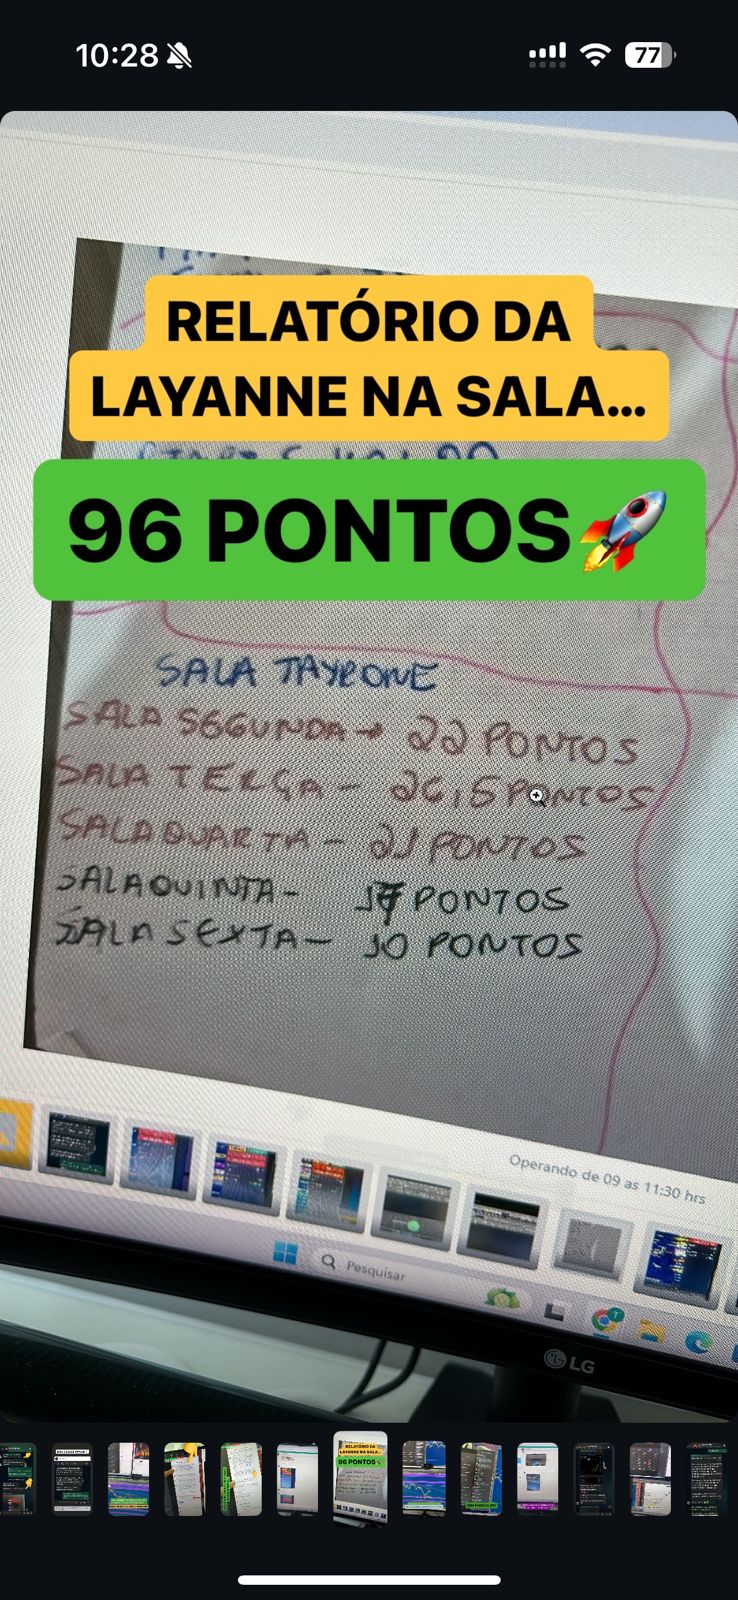 10:28
77
RELATÓRIO DA
LAYANNE NA SALA...
96 PONTOS🚀
SALA TAYRONE
SALA SEGUNDA → 22 PONTOS
SALA TERÇA - 26,5 PONTOS
SALA QUARTA - 21 PONTOS
SALA QUINTA - 17 PONTOS
SALA SEXTA - 10 PONTOS
Operando de 09 as 11:30 hrs
Pesquisar
LG